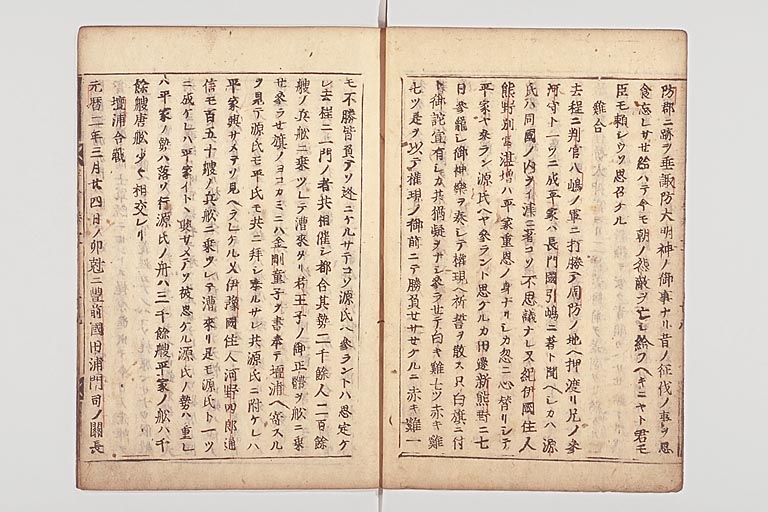 防郡ニ跡ヲ垂諏防大明神ノ御事ナリ昔ノ征伐ノ事ヲ思
食忘レサセ給ハテ今モ朝ノ怨敵ヲ亡シ給フヘキニヤト君モ
臣モ頼シウソ思召ケル
雞合
去程ニ判官八嶋ノ軍ニ打勝テ周防ノ地ヘ押渡リ兄ノ参
河守ト一ツニ成平家ハ長門國引嶋ニ著ト聞ヘシカハ源
氏ハ同國ノ内ヲイ津ニ著コソ不思議ナレ又紀伊國住人
熊野別當湛増ハ平家重恩ノ身ナリシカ忽ニ心替リシテ
平家ヤ参ラン源氏ヘヤ参ラント思ケルカ田邊新熊野ニ七
日参籠シ御神樂ヲ奏シテ権現ヘ祈誓ヲ散ス只白旗ニ付
ト御託宣有シカ共猶疑ヲナシ参ラセテ白キ雞七ツ赤キ雞
七ツ是ヲ以テ権現ノ御前ニテ勝負セサセケルニ赤キ雞一
モ不勝皆負テソ迯ニケルサテコソ源氏ヘ参ラントハ思定ケ
レ去程ニ一門ノ者共相催シ都合其勢二千餘人二百餘
艘ノ兵舩ニ乗ツレテ漕來タリ若王子ノ御正體ヲ舩ニ乗
セ参ラセ旗ノヨコカミニハ金剛童子ヲ書奉テ壇浦ヘ寄スル
ヲ見テ源氏モ平氏モ共ニ拜シ奉ルサレ共源氏ニ附ケレハ
平家興サメテソ見ヘラレケル又伊豫國住人河野四郎通
信モ百五十艘ノ兵舩ニ乗ツレテ漕來リ是モ源氏ト一ツ
ニ成ケレハ平家イトヽ興サメテソ被思ケル源氏ノ勢ハ重レ
ハ平家ノ勢ハ落ソ行源氏ノ舟ハ三千餘艘平家ノ舩ハ千
餘艘唐舩少々相交レリ
壇浦合戰
元暦二年三月廿四日ノ卯尅ニ豐前國田浦門司ノ關長